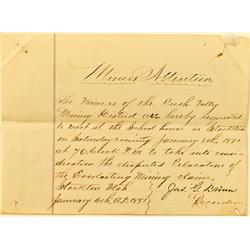 Miners Attention
The Miners of the Rush Valley
Mining District are hereby requested
to meet at the School house in Stockton
on Saturday evening January 8th 1881
at 7 O,Clock P.M. to take into consi-
deration the disputed Relocation of
the Everlasting Mining claim
Stockton Utah
January 6th A.D. 1881
Jas. G. Dixon
Recorder